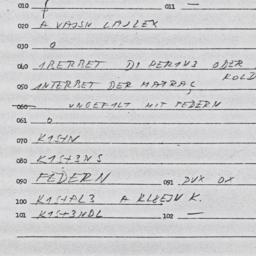 010 011 —
020 A VAJSN LAJLEX
030 0
040 INTERBET DI PERINZ ODER
KOLD
050 INTERBET DER MATRAC
060 UNGEFILT MIT FEDERN
061 0
070 KISTN
080 KIST3NS
090 FEDERN 091 DUX OX
100 KISTAL3 A KLEJN K.
101 KIST3NDL 102 —